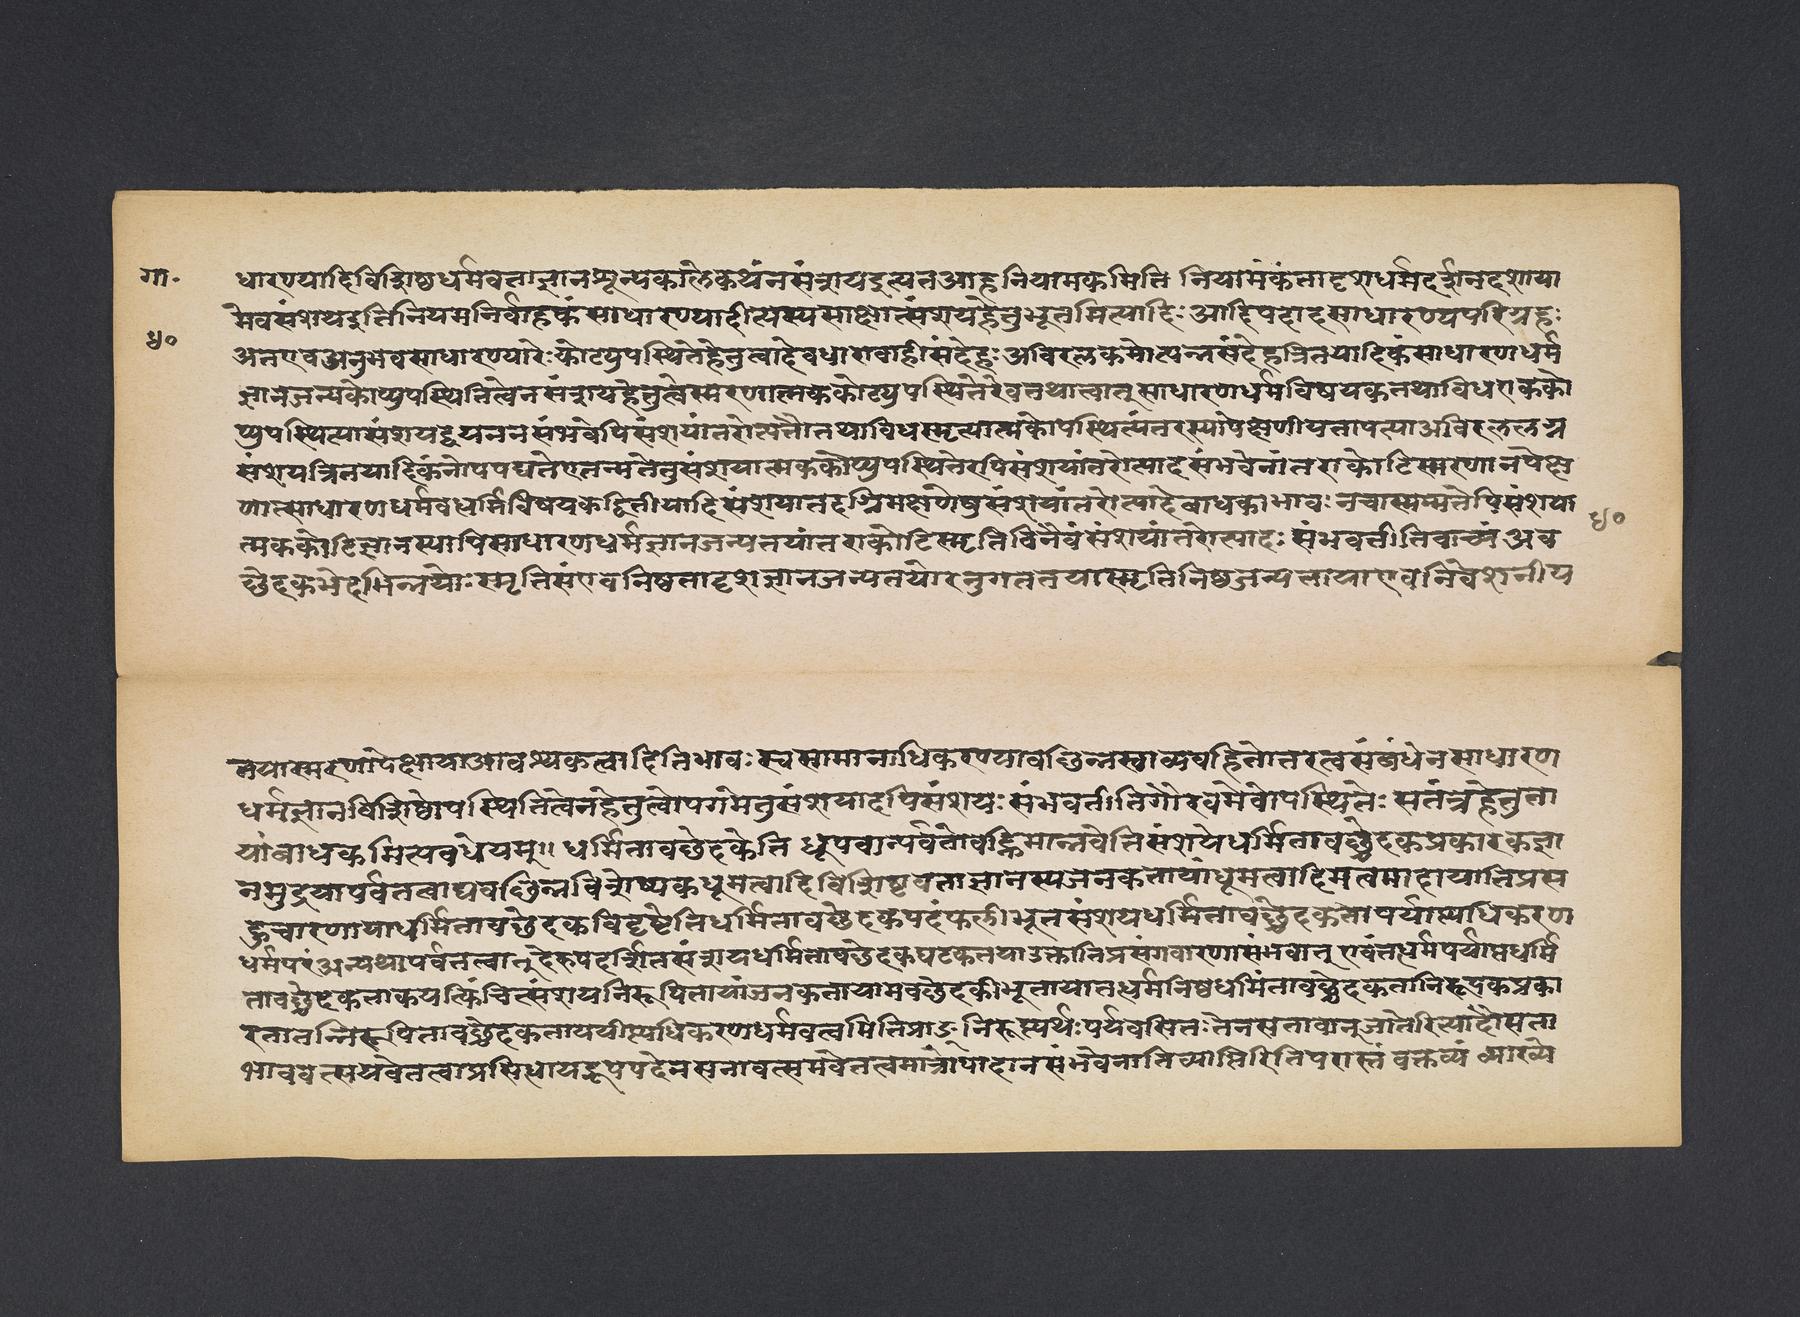 गा.
५०
धारण्यादिविशिष्टधर्मवत्ताज्ञानशून्यकालेकथंनसंशयइत्यतआहनियामकमिति नियामकंतादृशधर्मदर्शनदशाया
मेवसंशयइतिनियमनिर्वाहकंसाधारण्यादीत्यस्यसाक्षात्संशयहेतुभूतमित्यादिः आदिपदादसाधारण्यपरिग्रहः
अतएवअनुभवसाधारण्यारेःकोट्युपस्थितेहेतुत्वादेवधारावाहीसंदेहः अविरलक्रमोत्पन्नसंदेहत्रितयादिकंसाधारणधर्म
ज्ञानजन्यकोट्युपस्थितित्वेनसंशयहेतुत्वेस्मरणात्मककोट्युपस्थितेरेवतथात्वात्साधारणधर्मविषयकतथाविधएककको
ट्युपस्थित्यासंशयद्वयजननसंभवेपिसंशयांतरोत्पत्तौतथाविधस्मृत्यात्मकोपस्थित्यंतरस्यापेक्षणीयतापत्त्याअविरललग्न
संशयत्रितयादिकंनोपपद्यतेएतन्मतेतुसंशयात्मककोट्युपस्थितेरपिसंशयांतरोत्पादसंभवेनांतराकोटिस्मरणानपेक्ष
णात्साधारणधर्मवद्धर्मिविषयकद्वितीयादिसंशयात्तदग्रिमक्षणेषुसंशयांतरोत्पादेबाधकाभावः नचास्मन्मतेपिसंशया
त्मककोटिज्ञानस्यापिसाधारणधर्मज्ञानजन्यतयांतराकोटिस्मृतिविनैवंसंशयांतरोत्पादः संभवतीतिवाच्यं अव
च्छेदकभेदभिन्नयोःस्मृतिसंशयनिष्ठतादृशज्ञानजन्यतयोरनुगततयास्मृतिनिष्ठजन्यतायाएवनिवेशनीय
५०
तयास्मरणापेक्षायाआवश्यकत्वादितिभावः स्वसामानाधिकरण्यावछिन्नस्वाव्यवहितोत्तरत्वसंबंधेनसाधारण
धर्मज्ञानविशिष्टोपस्थितित्वेनहेतुत्वोपगमेतुसंशयादपिसंशयः संभवतीतिगौरवमेवोपस्थितेः सतंत्रहेतुता
यांबाधकमित्यवधेयम्॥ धर्मितावछेदकेति धूमवान्पर्वतोवह्निमान्नवेतिसंशयेधर्मितावच्छेदकप्रकारकज्ञा
नमुद्रयापर्वतत्वाद्यवछिन्नविशेष्यकधूमत्वादिविशिष्टवत्ताज्ञानस्यजनकतायांधूमत्वादिमत्वमादायातिप्रस
ङ्गवारणायाधर्मितावछेदकविदृष्टेतिधर्मितावछेदकपदंफलीभूतसंशयधर्मितावच्छेदकतापर्याप्त्यधिकरण
धर्मपरंअन्यथापर्वतत्वात्देरुपदर्शितसंशयधर्मितावछेदकघटकतयाउक्तातिप्रसंगवारणासंभवात् एवंतद्धर्मपर्याप्तधर्मि
तावच्छेदकताकयत्किंचित्संशयनिरूपितायांजनकतायामवछेदकीभूतायातद्धर्मनिष्ठधर्मितावच्छेदकतानिरूपकप्रका
रतातन्निरूपितावच्छेदकतापर्याप्त्यधिकरणधर्मवत्वमितिप्राङ्निरूप्यर्थः पर्यवसितः तेनसत्तावान्जातेरित्यादौसत्ता
भाववत्समवेतत्वाप्रसिध्यायद्रूपपदेनसत्तावत्समवेतत्वमात्रोपादानसंभवेनातिव्याप्तिरितिपरास्तं वक्तव्यं व्याख्ये